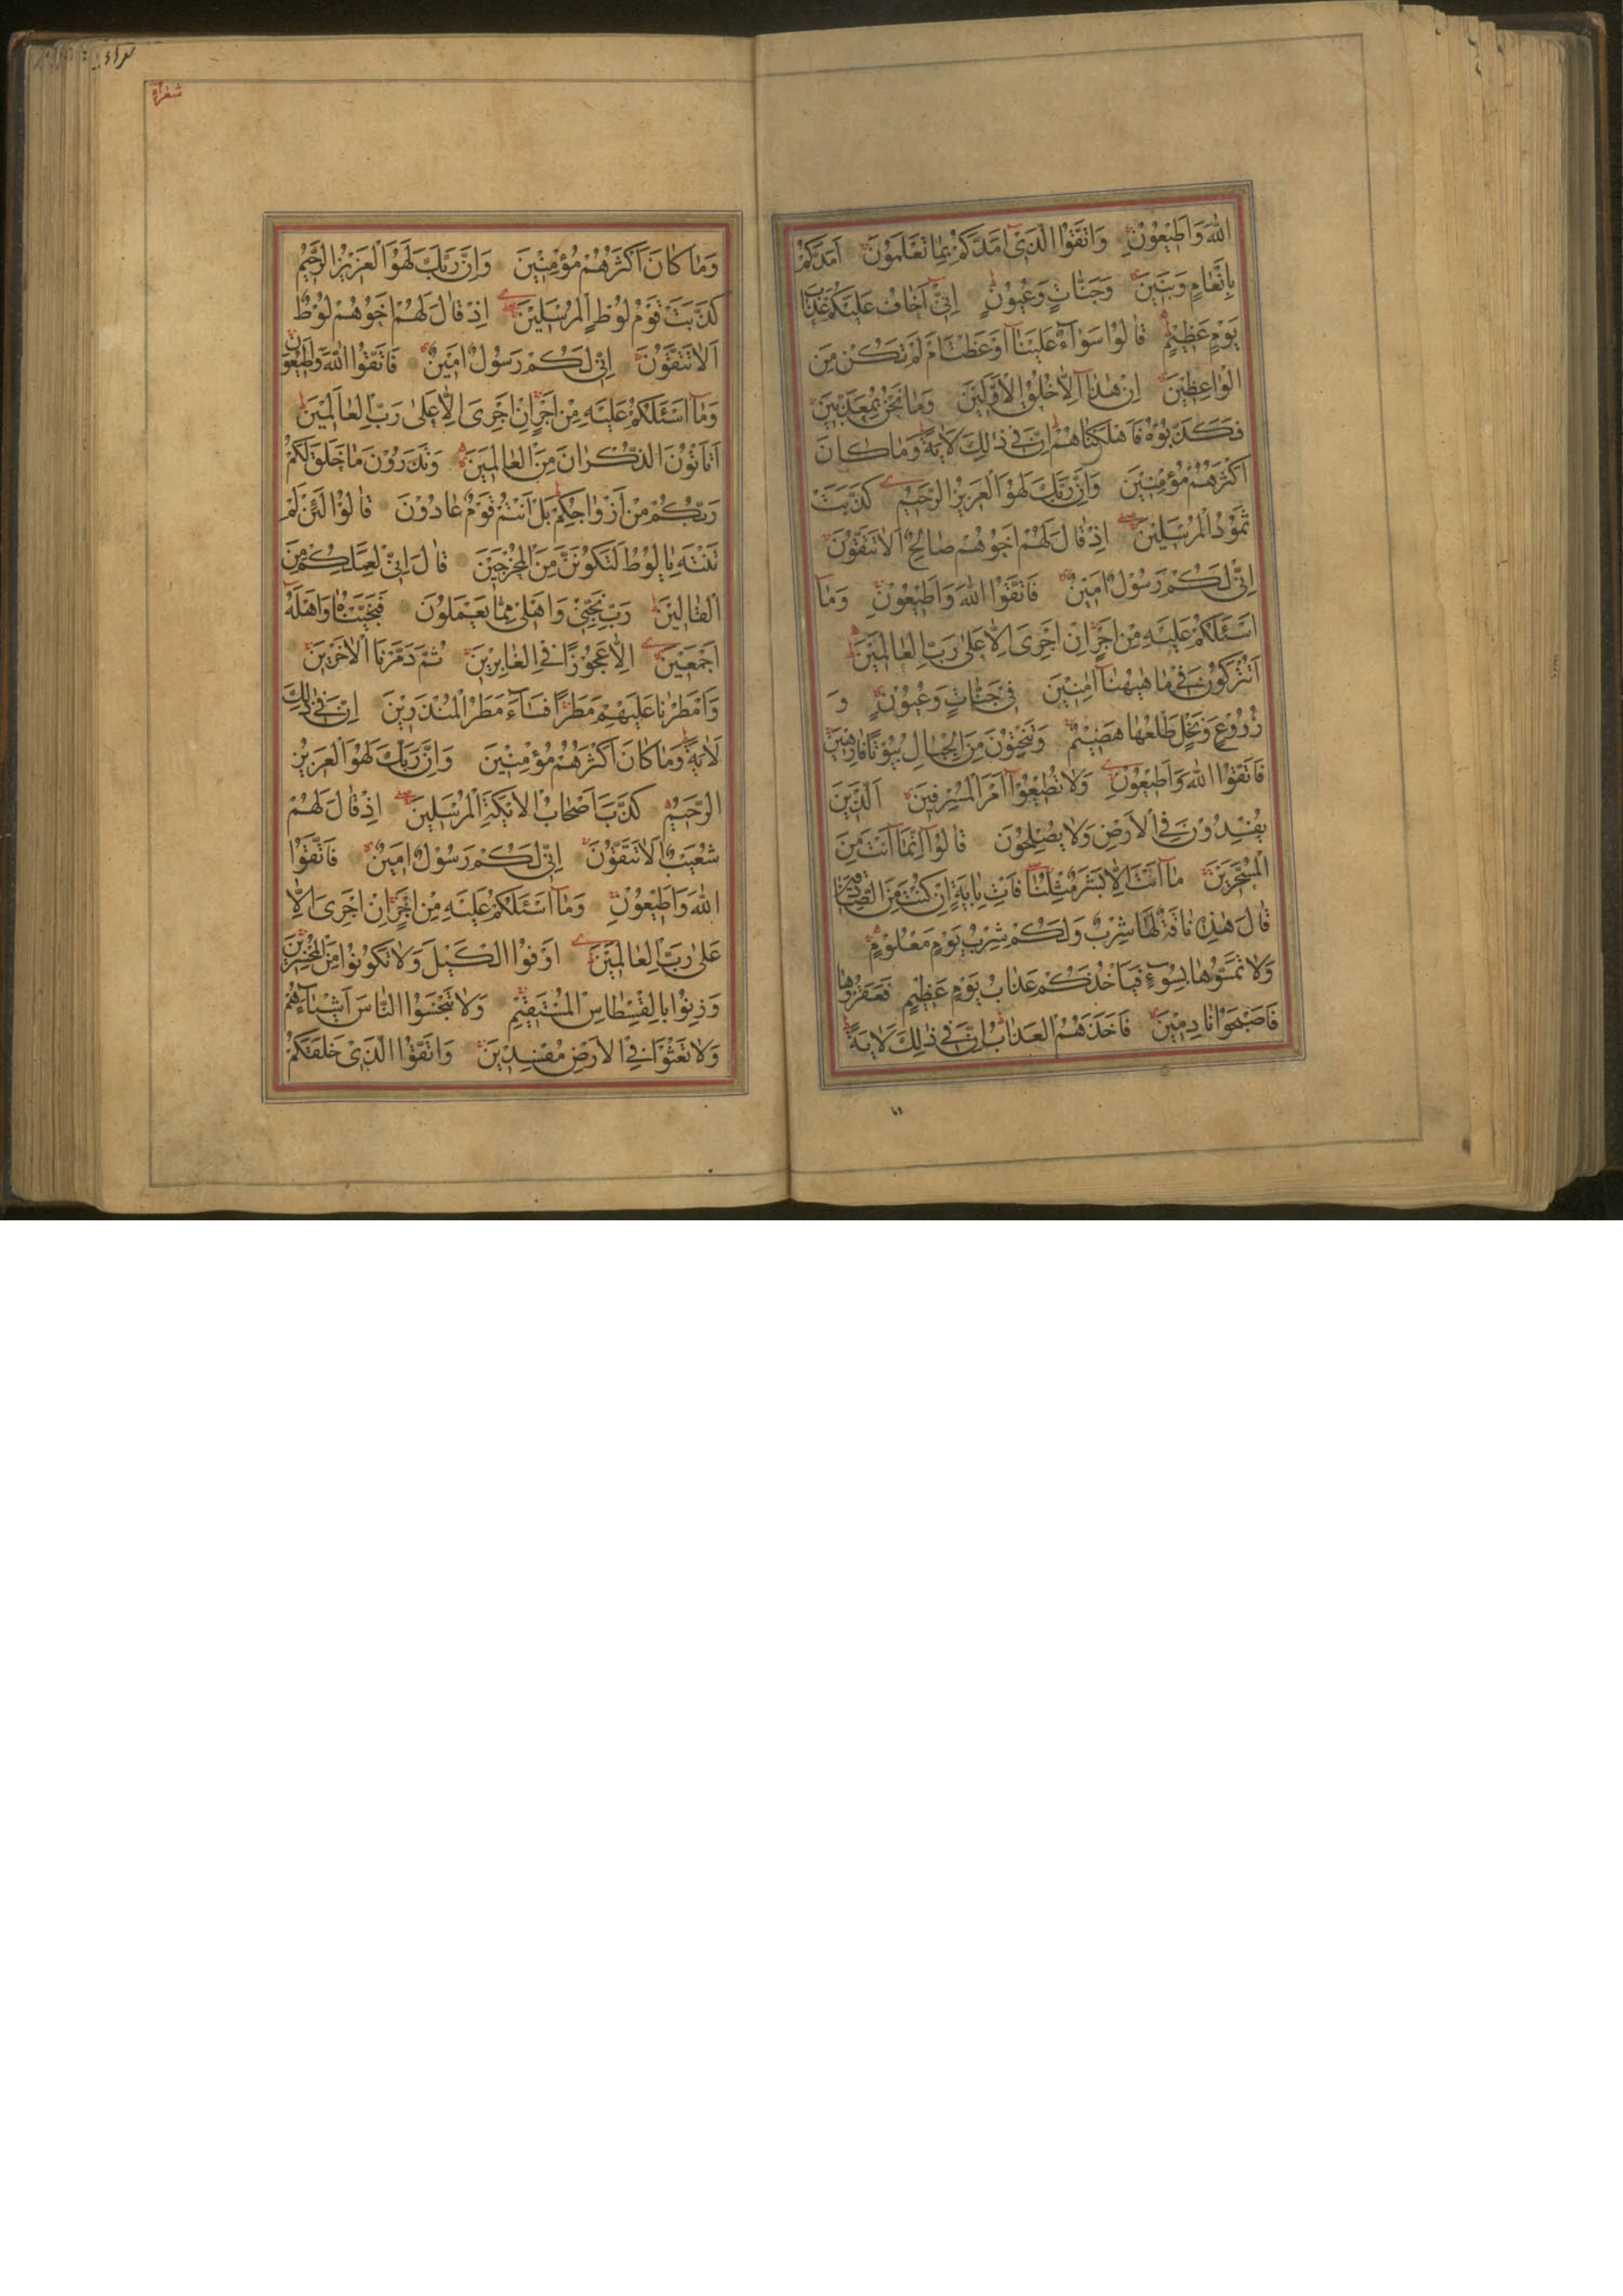 اللهَ وَاَطيعُونِ وَاتَّقُوا الَّذى اَمَدَّكُمْ بِمٰا تَعْلَمُونَ اَمَدَّكُمْ
بِاَنْعٰامٍ وَبَنينَ وَجَنّٰاتٍ وَعُيُونٍ اِنّى اَخٰافُ عَلَيْكُمْ عَذٰابَ
يَوْمٍ عَظيمٍ قٰالُوا سَوٰآءٌ عَلَيْنٰا اَوَعَظْتَ اَمْ لَمْ تَكُنْ مِنَ
الْوٰاعِظينَ اِنْ هٰذٰا اِلّٰا خُلُقُ الْاَوَّلينَ وَمٰا نَحْنُ بِمُعَذَّبينَ
فَكَذَّبُوهُ فَاَهْلَكْنٰاهُمْ اِنَّ فى ذٰلِكَ لَاٰيَةً وَمٰا كٰانَ
اَكْثَرُهُمْ مُؤْمِنينَ وَاِنَّ رَبَّكَ لَهُوَ الْعَزيزُ الرَّحيمُ كَذَّبَتْ
ثَمُودُ الْمُرْسَلينَ اِذْ قٰالَ لَهُمْ اَخُوهُمْ صٰالِحٌ اَلٰا تَتَّقُونَ
اِنّى لَكُمْ رَسُولٌ اَمينٌ فَاتَّقُوا اللهَ وَاَطيعُونِ وَمٰا
اَسْئَلُكُمْ عَلَيْهِ مِنْ اَجْرٍ اِنْ اَجْرِىَ اِلّٰا عَلىٰ رَبِّ الْعٰالَمينَ
اَتُتْرَكُونَ فى مٰا هٰيهُنٰا اٰمِنينَ فى جَنّٰاتٍ وَعُيُونٍ وَ
زُرُوعٍ وَنَخْلٍ طَلْعُهٰا هَضيمٌ وَتَنْحِتُونَ مِنَ الْجِبٰالِ بُيُوتًا فٰارِهينَ
فَاتَّقُوا اللهَ وَاَطيعُونِ وَلٰا تُطيعُوا اَمْرَ الْمُسْرِفينَ اَلَّذينَ
يُفْسِدُونَ فِى الْاَرْضِ وَلٰا يُصْلِحُونَ قٰالُوا اِنَّمٰا اَنْتَ مِنَ
الْمُسَحَّرينَ مٰا اَنْتَ اِلّٰا بَشَرٌ مِثْلُنٰا فَاْتِ بِاٰيَةٍ اِنْ كُنْتَ مِنَ الصّٰادِقينَ
قٰالَ هٰذِهِ نٰاقَةٌ لَهٰا شِرْبٌ وَلَكُمْ شِرْبُ يَوْمٍ مَعْلُومٍ
وَلٰا تَمَسُّوهٰا بِسُوءٍ فَيَاْخُذَكُمْ عَذٰابُ يَوْمٍ عَظيمٍ فَعَقَرُوهٰا
فَاَصْبَحُوا نٰادِمينَ فَاَخَذَهُمُ الْعَذٰابُ اِنَّ فى ذٰلِكَ لَاٰيَةً
شعراء
وَمٰا كٰانَ اَكْثَرُهُمْ مُؤْمِنينَ وَاِنَّ رَبَّكَ لَهُوَ الْعَزيزُ الرَّحيمُ
كَذَّبَتْ قَوْمُ لُوطٍ الْمُرْسَلينَ اِذْ قٰالَ لَهُمْ اَخُوهُمْ لُوطٌ
اَلٰا تَتَّقُونَ اِنّى لَكُمْ رَسُولٌ اَمينٌ فَاتَّقُوا اللهَ وَاَطيعُونِ
وَمٰا اَسْئَلُكُمْ عَلَيْهِ مِنْ اَجْرٍ اِنْ اَجْرِىَ اِلّٰا عَلىٰ رَبِّ الْعٰالَمينَ
اَتَاْتُونَ الذُّكْرٰانَ مِنَ الْعٰالَمينَ وَتَذَرُونَ مٰا خَلَقَ لَكُمْ
رَبُّكُمْ مِنْ اَزْوٰاجِكُمْ بَلْ اَنْتُمْ قَوْمٌ عٰادُونَ قٰالُوا لَئِنْ لَمْ
تَنْتَهِ يٰا لُوطُ لَتَكُونَنَّ مِنَ الْمُخْرَجينَ قٰالَ اِنّى لِعَمَلِكُمْ مِنَ
الْقٰالينَ رَبِّ نَجِّنى وَاَهْلى مِمّٰا يَعْمَلُونَ فَنَجَّيْنٰاهُ وَاَهْلَهُ
اَجْمَعينَ اِلّٰا عَجُوزًا فِى الْغٰابِرينَ ثُمَّ دَمَّرْنَا الْاٰخَرينَ
وَاَمْطَرْنٰا عَلَيْهِمْ مَطَرًا فَسٰآءَ مَطَرُ الْمُنْذَرينَ اِنَّ فى ذٰلِكَ
لَاٰيَةً وَمٰا كٰانَ اَكْثَرُهُمْ مُؤْمِنينَ وَاِنَّ رَبَّكَ لَهُوَ الْعَزيزُ
الرَّحيمُ كَذَّبَ اَصْحٰابُ الْاَيْكَةِ الْمُرْسَلينَ اِذْ قٰالَ لَهُمْ
شُعَيْبٌ اَلٰا تَتَّقُونَ اِنّى لَكُمْ رَسُولٌ اَمينٌ فَاتَّقُوا
اللهَ وَاَطيعُونِ وَمٰا اَسْئَلُكُمْ عَلَيْهِ مِنْ اَجْرٍ اِنْ اَجْرِىَ اِلّٰا
عَلىٰ رَبِّ الْعٰالَمينَ اَوْفُوا الْكَيْلَ وَلٰا تَكُونُوا مِنَ الْمُخْسِرينَ
وَزِنُوا بِالْقِسْطٰاسِ الْمُسْتَقيمِ وَلٰا تَبْخَسُوا النّٰاسَ اَشْيٰآءَهُمْ
وَلٰا تَعْثَوْا فِى الْاَرْضِ مُفْسِدينَ وَاتَّقُوا الَّذى خَلَقَكُمْ